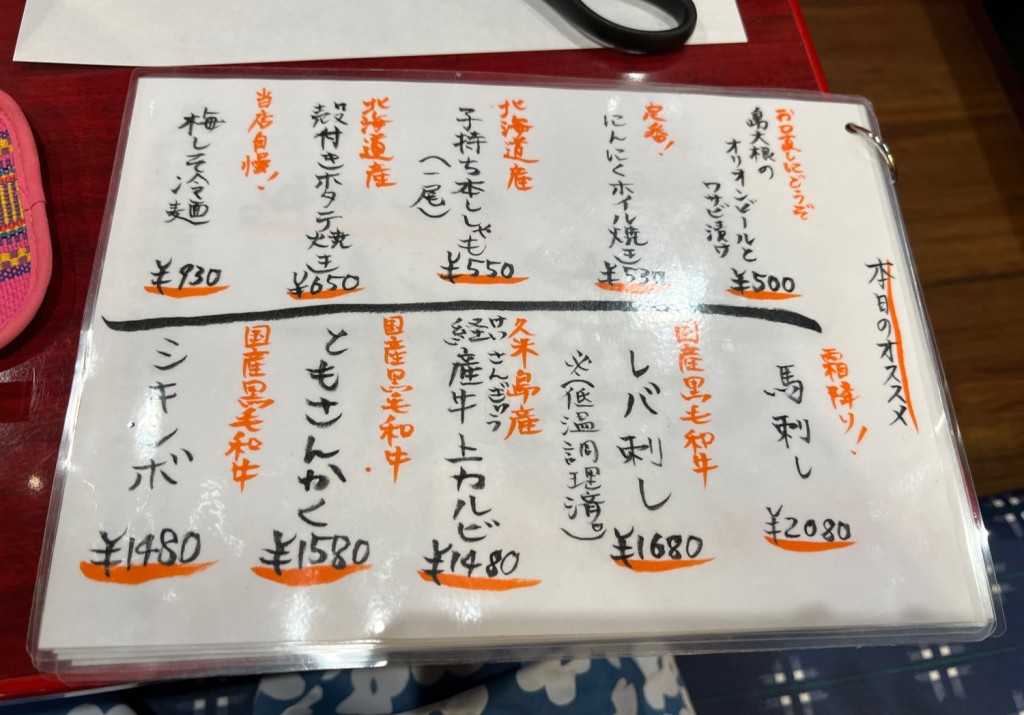 本日のオススメ
お口直しにどうぞ
島大根の
オリオンビールと
ワサビ漬け
¥500
定番!
にんにくホイル焼き
¥530
北海道産
子持ち本ししゃも
(一尾)
¥550
北海道産
殻付きホタテ焼き
¥650
当店自慢!
梅しそ冷麺
¥930
霜降り!
馬刺し
¥2080
国産黒毛和牛
レバ刺し
(低温調理済。)
¥1680
久米島産
けいさんぎゅう
経産牛上カルビ
¥1480
国産黒毛和牛
ともさんかく
¥1580
国産黒毛和牛
シキンボ
¥1480